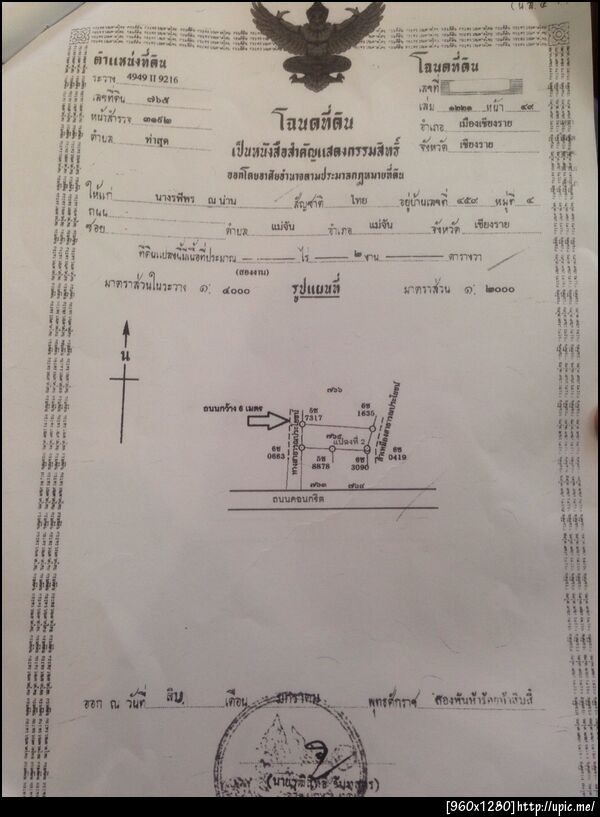 (น.ส. ๔
ตำแหน่งที่ดิน
ระวาง 4949 II 9216
เลขที่ดิน ๗๖๕
หน้าสำรวจ ๓๑๕๒
ตำบล ท่าสุด
โฉนดที่ดิน
เลขที่
เล่ม ๑๒๒๑ หน้า ๔๙
อำเภอ เมืองเชียงราย
จังหวัด เชียงราย
โฉนดที่ดิน
เป็นหนังสือสำคัญแสดงกรรมสิทธิ์
ออกโดยอาศัยอำนาจตามประมวลกฎหมายที่ดิน
ให้แก่ นางรพีพร ณ น่าน สัญชาติ ไทย อยู่บ้านเลขที่ ๔๕๙ หมู่ที่ ๔
ถนน
ซอย ตำบล แม่จัน อำเภอ แม่จัน จังหวัด เชียงราย
ที่ดินแปลงนี้มีเนื้อที่ประมาณ ไร่ ๒ งาน ตารางวา
(สองงาน)
มาตราส่วนในระวาง ๑: ๔๐๐๐ รูปแผนที่ มาตราส่วน ๑: ๒๐๐๐
น
๗๖๖
ถนนกว้าง 6 เมตร
5ซ 7317
6ซ 1635
ทางสาธารณประโยชน์
ลำเหมืองสาธารณประโยชน์
๗๖๕ แปลงที่ 2
6ซ 0663
5ซ 8878
6ซ 3090
6ซ 0419
๗๖๓ ๗๖๔
ถนนคอนกรีต
ออก ณ วันที่ สิบ เดือน มกราคม พุทธศักราช สองพันห้าร้อยห้าสิบสี่
[960x1280]http://upic.me/